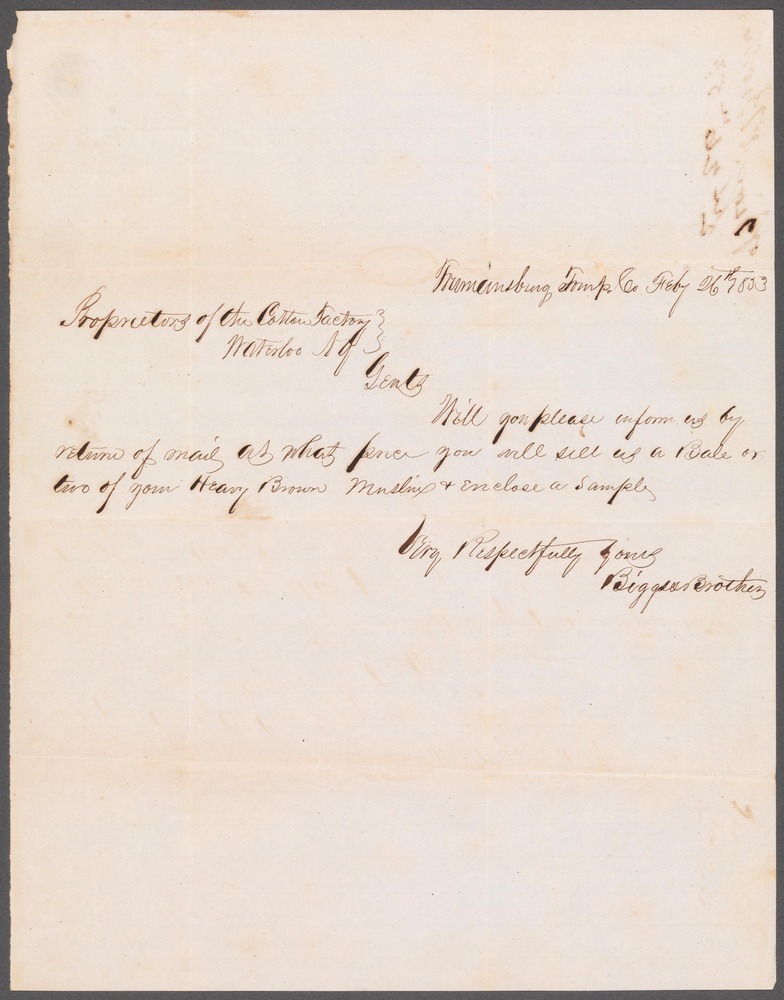 Trumansburg Tomp. Co Feby 26th 1853
Proprietors of the Cotton Factory
Waterloo N Y
Gents
Will you please inform us by
return of mail at what price you will sell us a Bale or
two of your Heavy Brown Muslins & enclose a Sample
Very Respectfully Yours
Biggs & Brother